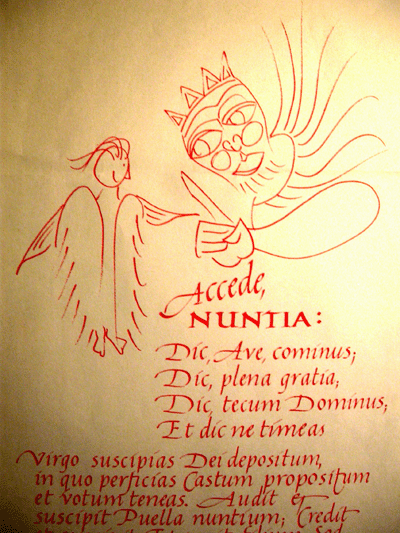 Accede,
NUNTIA:
Dic, Ave, cominus;
Dic, plena gratia;
Dic, tecum Dominus;
Et dic ne timeas
Virgo suscipias Dei depositum,
in quo perficias Castum propositum
et votum teneas. Audit et
suscipit Puella nuntium; Credit